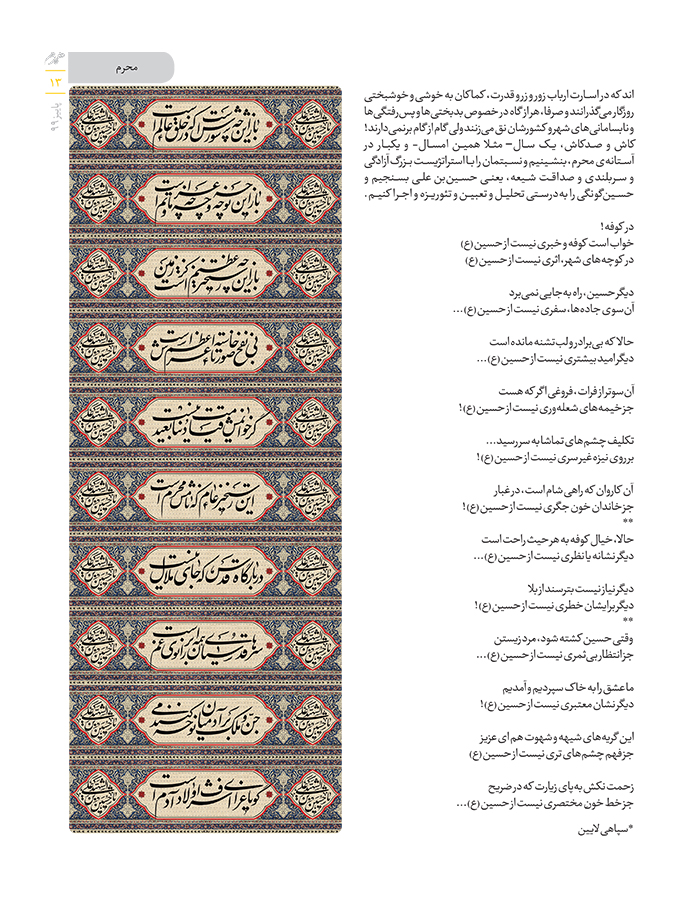 محرم
۱۳
پاییز ۹۹
اند که در اسارت ارباب زور و زر و قدرت، کماکان به خوشی و خوشبختی
روزگار می‌گذرانند و صرفا، هر از گاه در خصوص بدبختی‌ها و پس‌رفتگی‌ها
و نابسامانی‌های شهر و کشورشان نق می‌زنند ولی گام از گام برنمی‌دارند!
کاش و صدکاش، یک سال– مثلا همین امسال- و یکبار در
آستانه‌ی محرم، بنشینیم و نسبتمان را با استراتژیست بزرگ آزادگی
و سربلندی و صداقت شیعه، یعنی حسین‌بن علی بسنجیم و
حسین‌گونگی را به درستی تحلیل و تعیین و تئوریزه و اجرا کنیم.
در کوفه!
خواب است کوفه و خبری نیست از حسین (ع)
در کوچه‌های شهر، اثری نیست از حسین (ع)
دیگر حسین، راه به جایی نمی‌برد
آن سوی جاده‌ها، سفری نیست از حسین (ع)...
حالا که بی‌برادر و لب تشنه مانده است
دیگر امید بیشتری نیست از حسین (ع)...
آن سوتر از فرات، فروغی اگر که هست
جز خیمه‌های شعله‌وری نیست از حسین (ع)!
تکلیف چشم‌های تماشا به سر رسید...
بر روی نیزه غیر سری نیست از حسین (ع)!
آن کاروان که راهی شام است، در غبار
جز خاندان خون جگری نیست از حسین (ع)!
**
حالا، خیال کوفه به هر حیث راحت است
دیگر نشانه یا نظری نیست از حسین (ع)...
دیگر نیاز نیست بترسند از بلا
دیگر برایشان خطری نیست از حسین (ع)!
**
وقتی حسین کشته شود، مرد زیستن
جز انتظار بی‌ثمری نیست از حسین (ع)...
ما عشق را به خاک سپردیم و آمدیم
دیگر نشان معتبری نیست از حسین (ع)!
این گریه‌های شیهه و شهوت هم ای عزیز
جز فهم چشم‌های تری نیست از حسین (ع)
زحمت نکش به پای زیارت که در ضریح
جز خط خون مختصری نیست از حسین (ع)...
*سپاهی لایین
باز این چه شورش است که در خلق عالم است
باز این چه نوحه و چه عزا و چه ماتم است
باز این چه رستخیز عظیم است کز زمین
بی نفخ صور خاسته تا عرش اعظم است
گر خوانمش قیامت دنیا بعید نیست
این رستخیز عام که نامش محرم است
در بارگاه قدس که جای ملال نیست
سرهای قدسیان همه بر زانوی غم است
جن و ملک بر آدمیان نوحه می‌کنند
گویا عزای اشرف اولاد آدم است